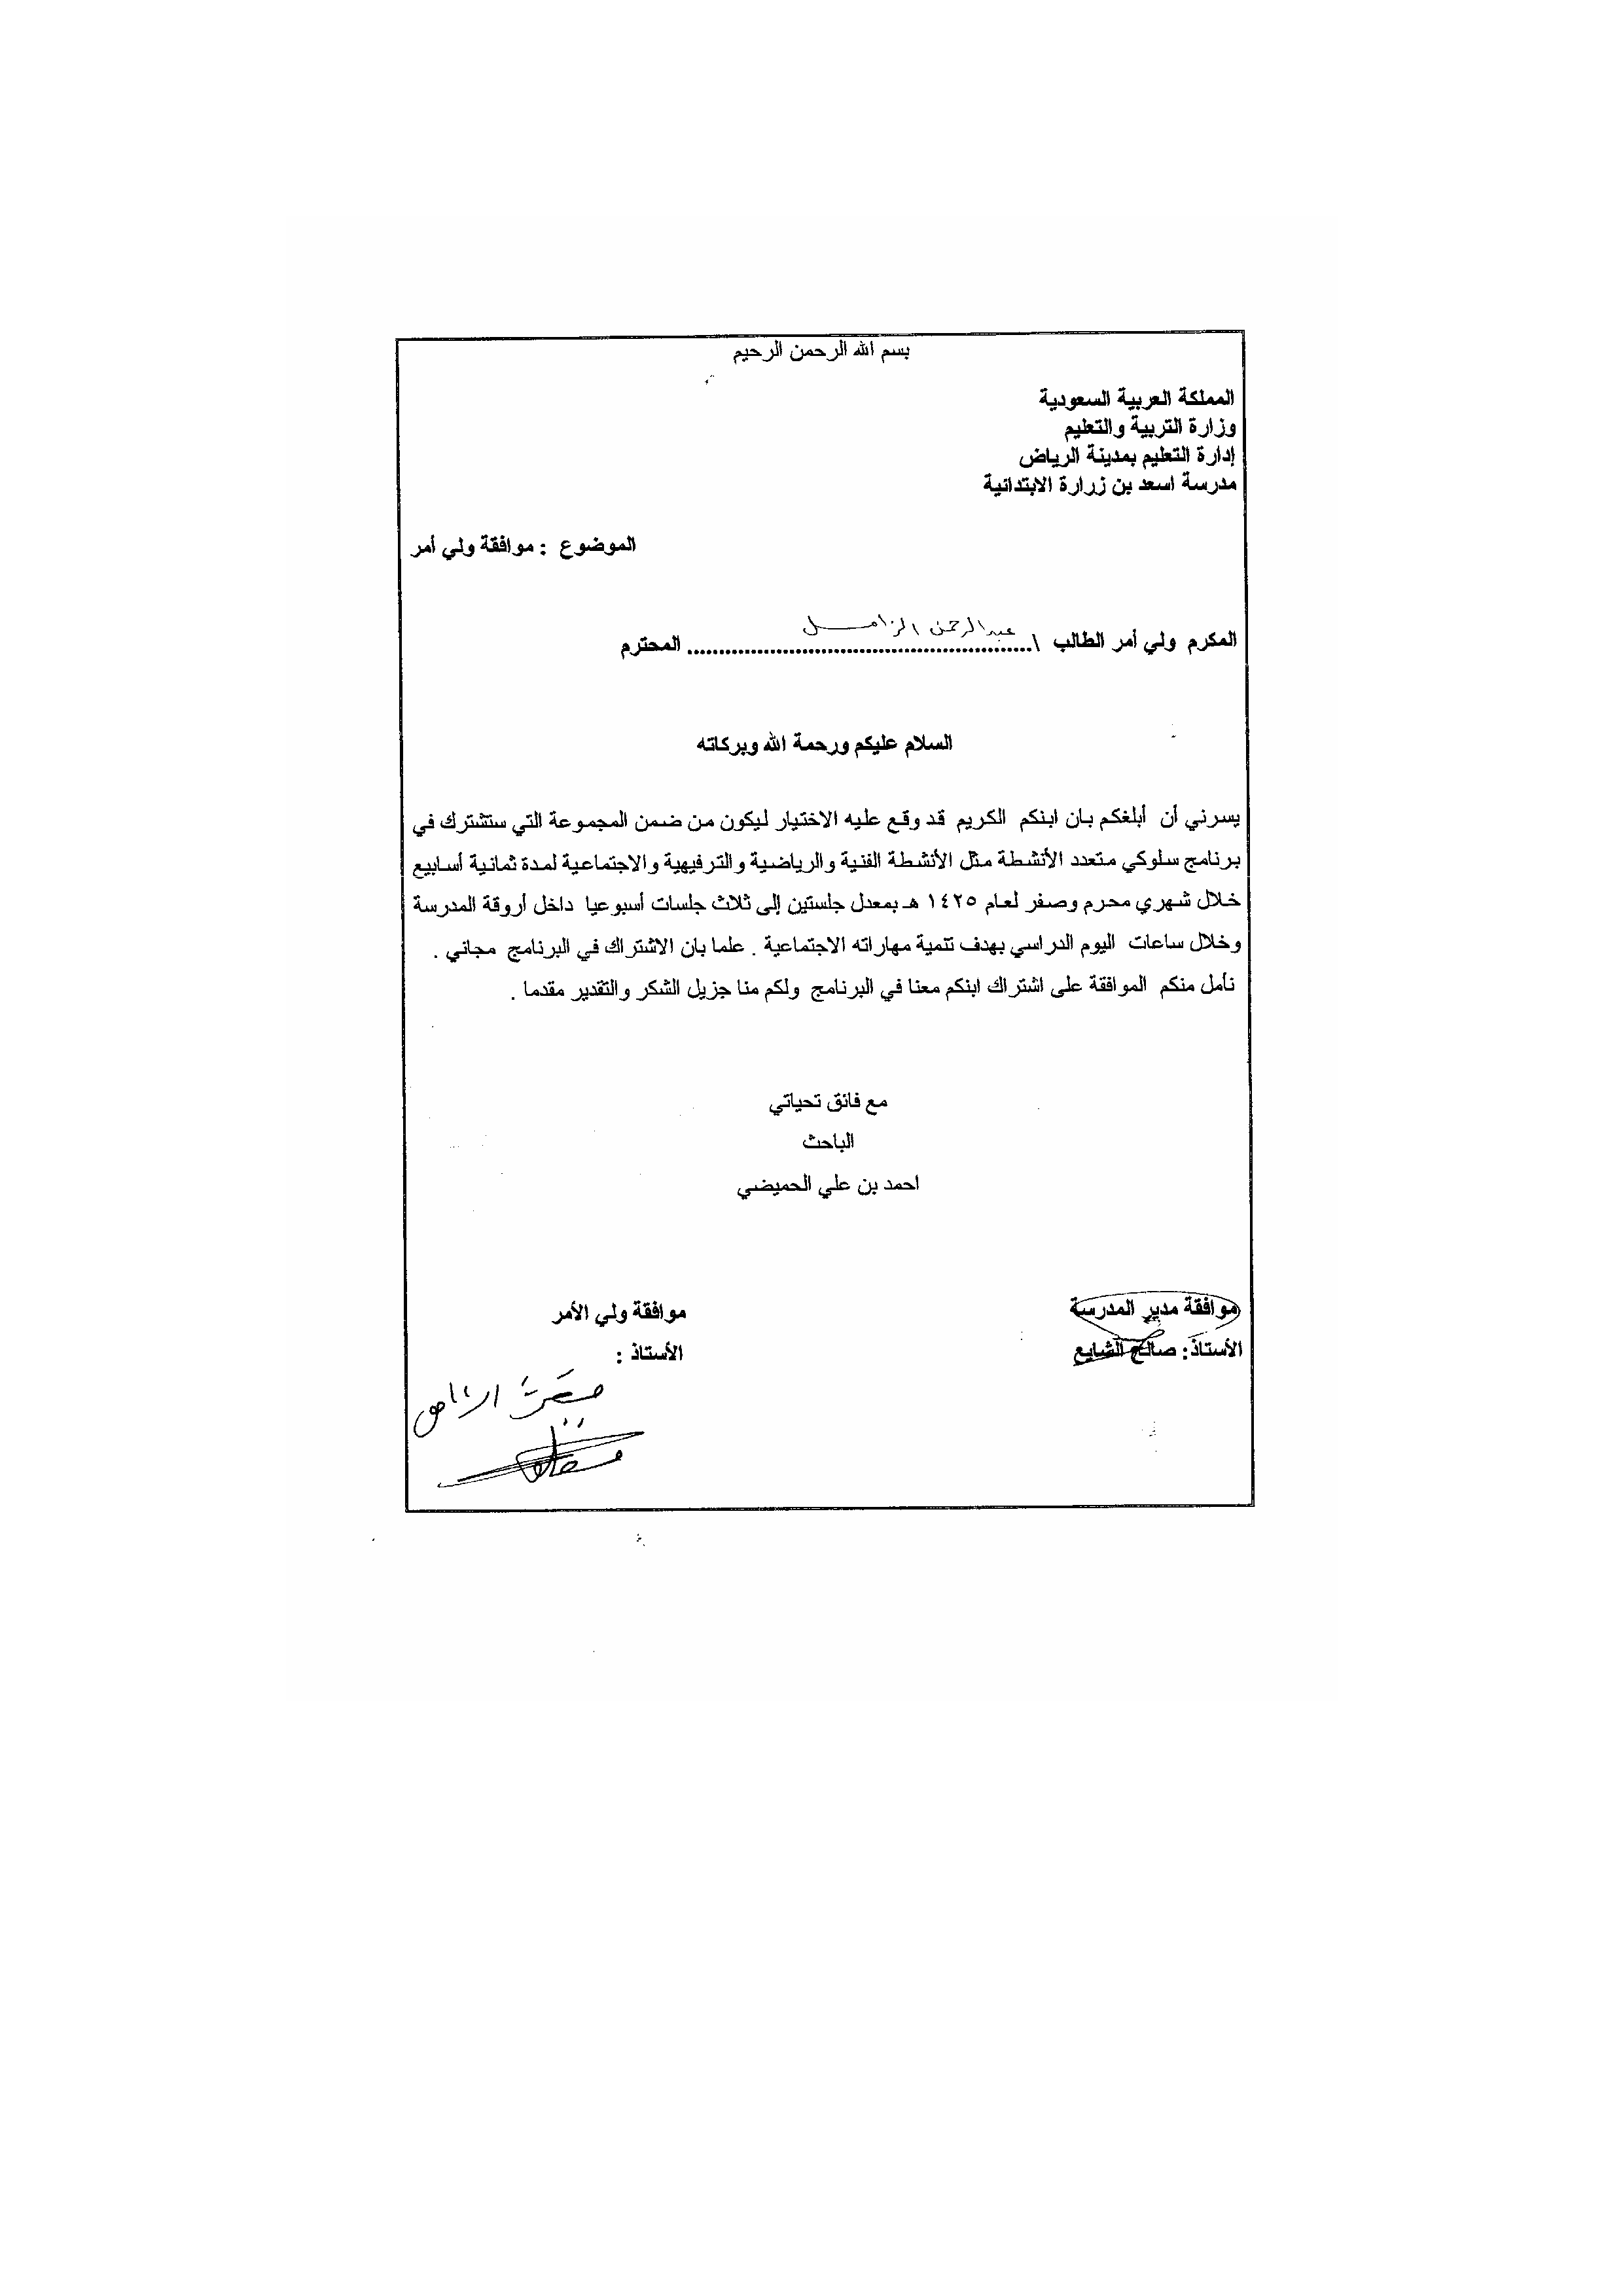 بسم الله الرحمن الرحيم
المملكة العربية السعودية
وزارة التربية والتعليم
إدارة التعليم بمدينة الرياض
مدرسة اسعد بن زرارة الابتدائية
الموضوع : موافقة ولي أمر
المكرم ولي أمر الطالب \ عبدالرحمن الزامل المحترم
السلام عليكم ورحمة الله وبركاته
يسرني أن أبلغكم بان ابنكم الكريم قد وقع عليه الاختيار ليكون من ضمن المجموعة التي ستشترك في
برنامج سلوكي متعدد الأنشطة مثل الأنشطة الفنية والرياضية والترفيهية والاجتماعية لمدة ثمانية أسابيع
خلال شهري محرم وصفر لعام ١٤٢٥ هـ بمعدل جلستين إلى ثلاث جلسات أسبوعيا داخل أروقة المدرسة
وخلال ساعات اليوم الدراسي بهدف تنمية مهاراته الاجتماعية . علما بان الاشتراك في البرنامج مجاني .
نأمل منكم الموافقة على اشتراك ابنكم معنا في البرنامج ولكم منا جزيل الشكر والتقدير مقدما .
مع فائق تحياتي
الباحث
احمد بن علي الحميضي
موافقة مدير المدرسة
الأستاذ: صالح الشايع
موافقة ولي الأمر
الأستاذ :